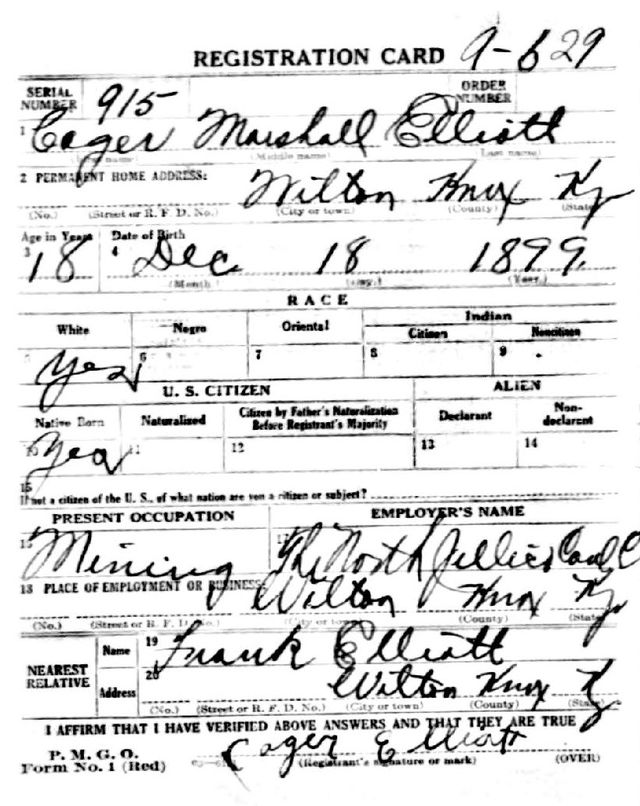 REGISTRATION CARD 9-6 29
SERIAL NUMBER 915 ORDER NUMBER
1 Cager Marshall Elliott
(First name) (Middle name) (Last name)
2 PERMANENT HOME ADDRESS:
Wilton Knox Ky
(No.) (Street or R. F. D. No.) (City or town) (County) (State)
Age in Years Date of Birth
3 18 4 Dec. 18 1899
(Month) (Day.) (Year.)
RACE
White Negro Oriental Indian
Citizen Noncitizen
5 Yes 6 7 8 9
U. S. CITIZEN ALIEN
Native Born Naturalized Citizen by Father's Naturalization Before Registrant's Majority Declarant Non-declarant
10 Yes 11 12 13 14
15
If not a citizen of the U. S., of what nation are you a citizen or subject?
PRESENT OCCUPATION EMPLOYER'S NAME
Mining The North Jellico Coal C
18 PLACE OF EMPLOYMENT OR BUSINESS:
Wilton Knox Ky
(No.) (Street or R. F. D. No.) (City or town) (County) (State)
NEAREST RELATIVE Name 19 Frank Elliott
Address 20 Wilton Knox Ky
(No.) (Street or R. F. D. No.) (City or town) (County) (State)
I AFFIRM THAT I HAVE VERIFIED ABOVE ANSWERS AND THAT THEY ARE TRUE
P. M. G. O.
Form No. 1 (Red) Cager Elliott
(Registrant's signature or mark) (OVER)